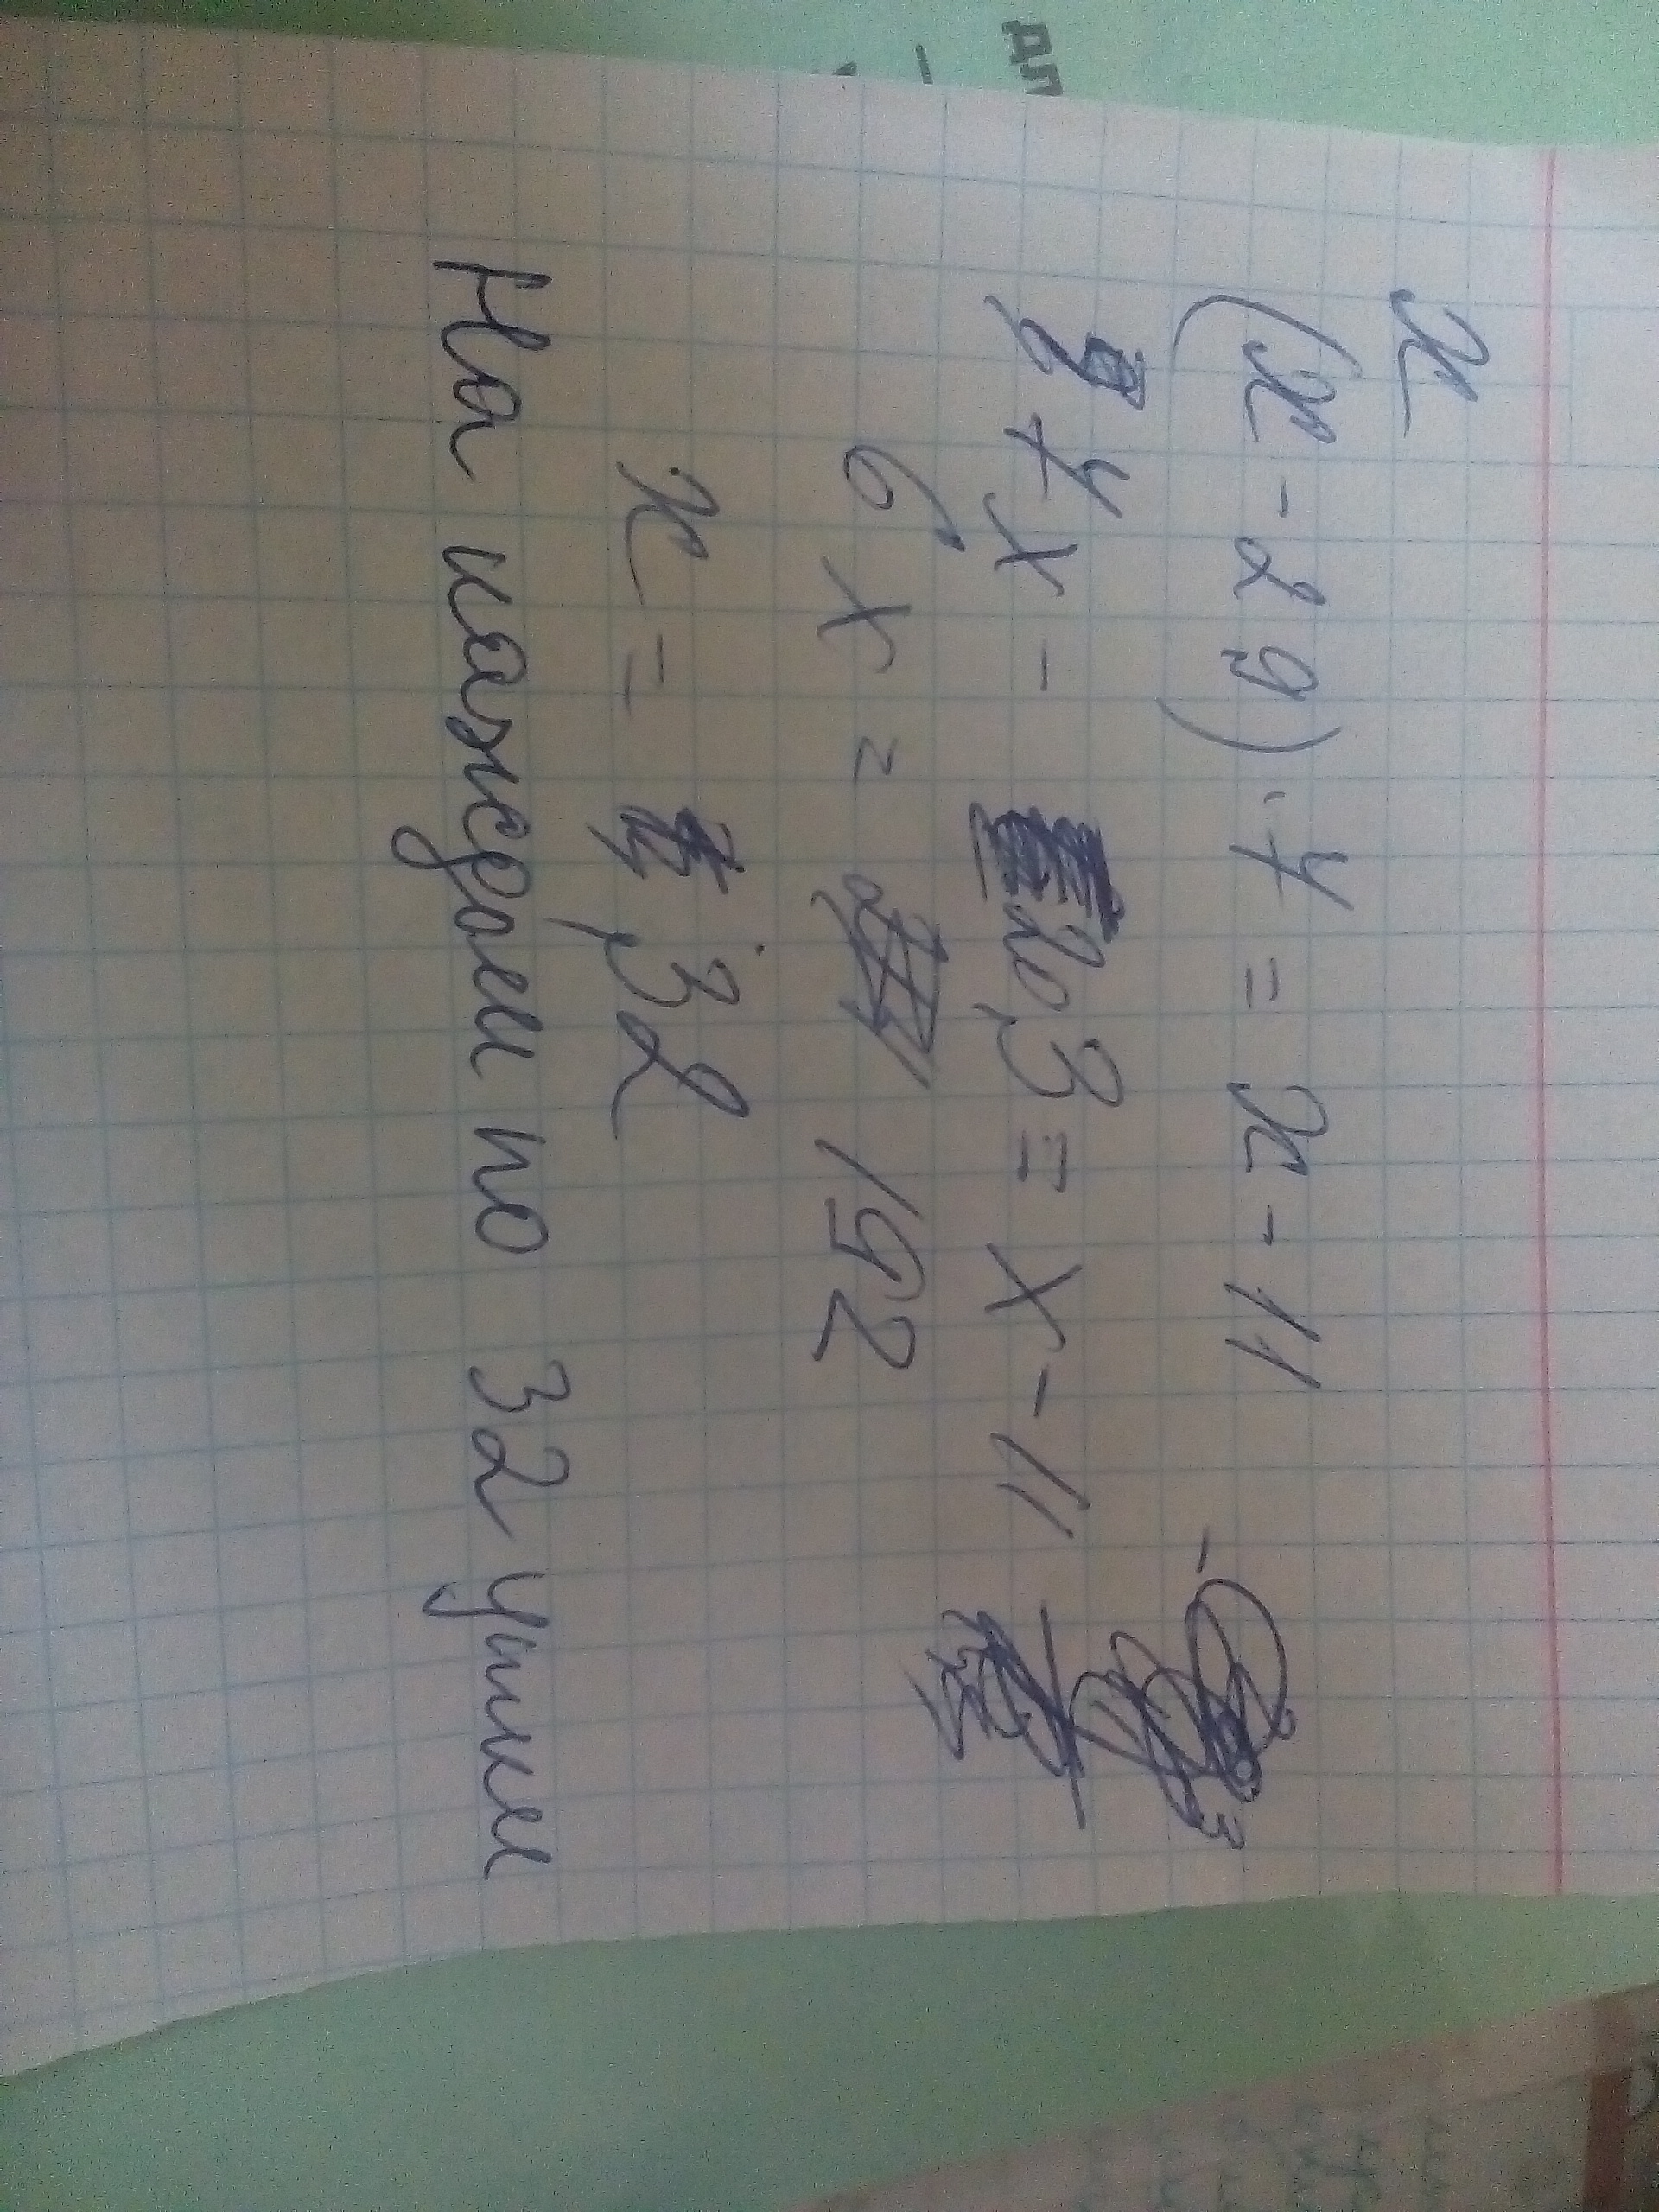 x
(x - 29) · 7 = x - 11
7x - 203 = x - 11
6x = 192
x = 32
На каждом по 32 утки
дл